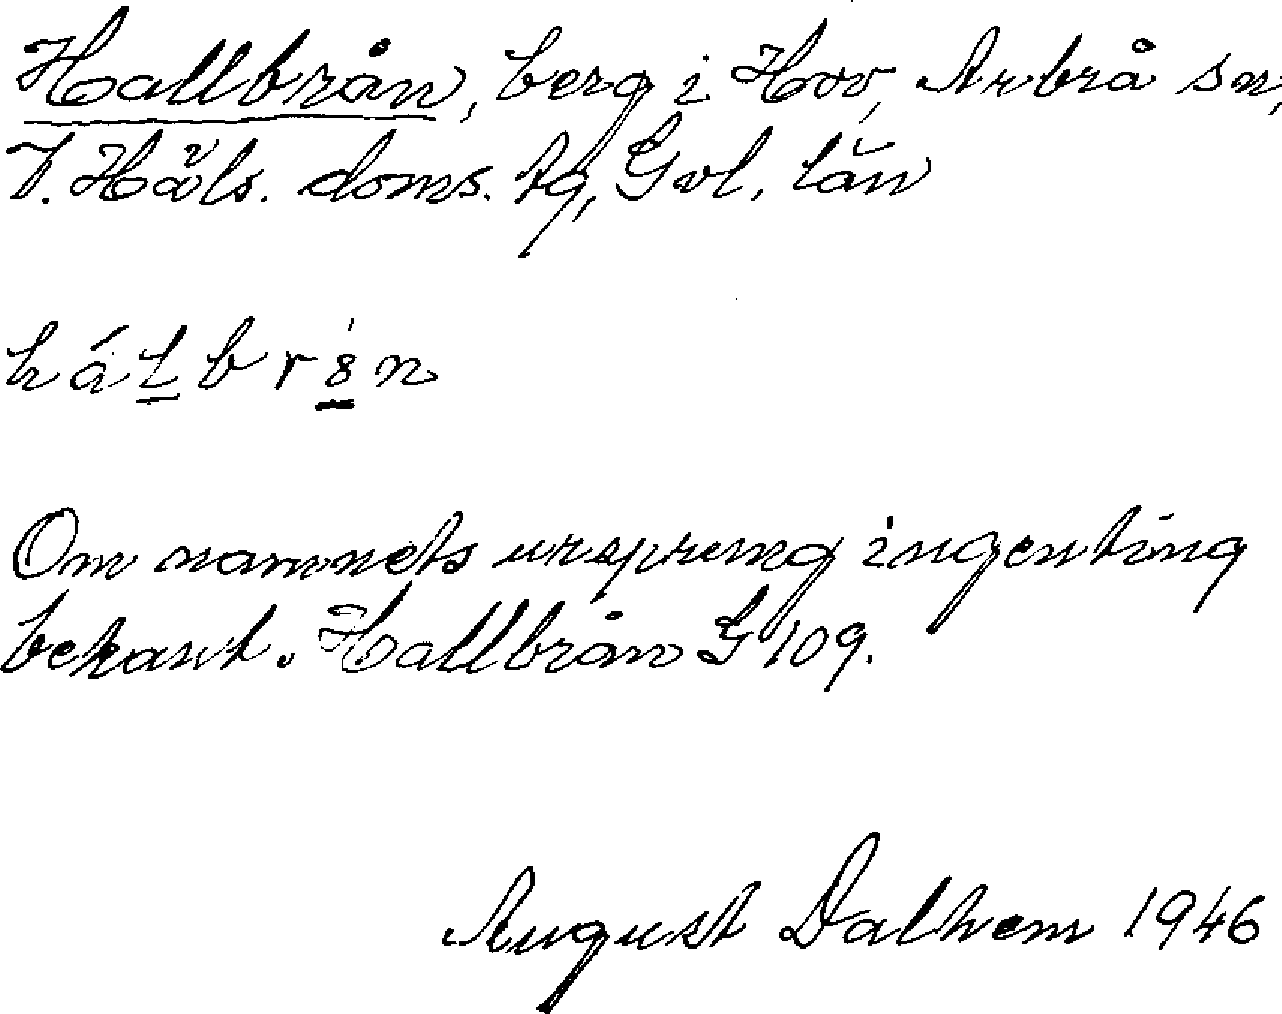 Hallbrån, berg i Hov, Arbrå sn,
V. Häls. doms. tg, Gvl. län
Om namnets ursprung ingenting
bekant. Hallbrån G 109.
August Dalhem 1946